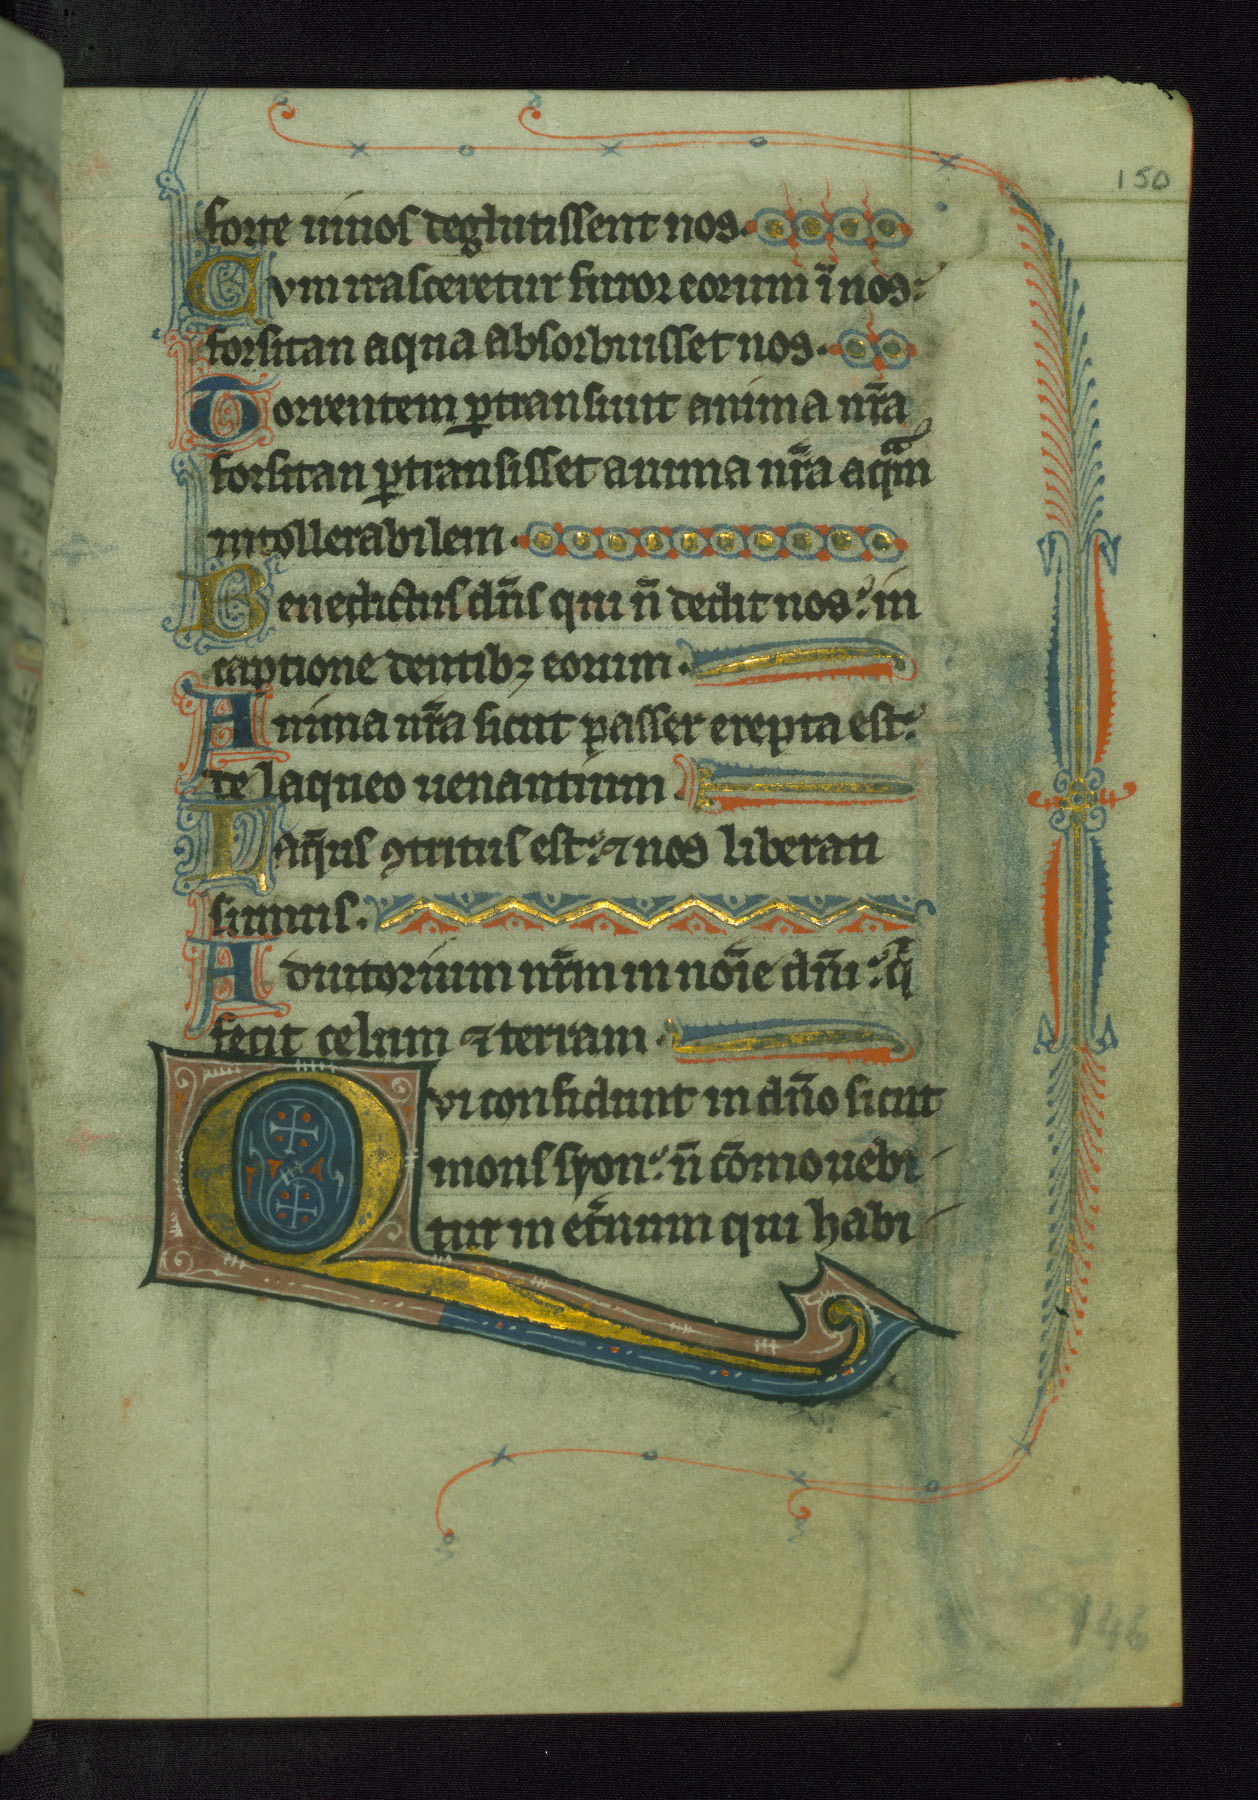 150
forte uiuos deglutissent nos.
Cvm irasceretur furor eorum ī nos:
forsitan aqua absorbuisset nos.
Torrentem ꝑtransiuit anima nr̄a
forsitan ꝑtransisset anima nr̄a aqᷓm
intollerabilem.
Benedictus dn̄s qui n̄ dedit nos: in
captione dentibꝫ eorum.
Anima nr̄a sicut passer erepta est:
de laqueo uenantium.
Laq̄us ꝯtritus est: ⁊ nos liberati
sumus.
Adiutorium nr̄m in noīe dn̄i: qͥ
fecit celum ⁊ terram.
Qvi confidunt in dn̄o sicut
mons syon: n̄ cōmouebi
tur in et̄num qui habi
146